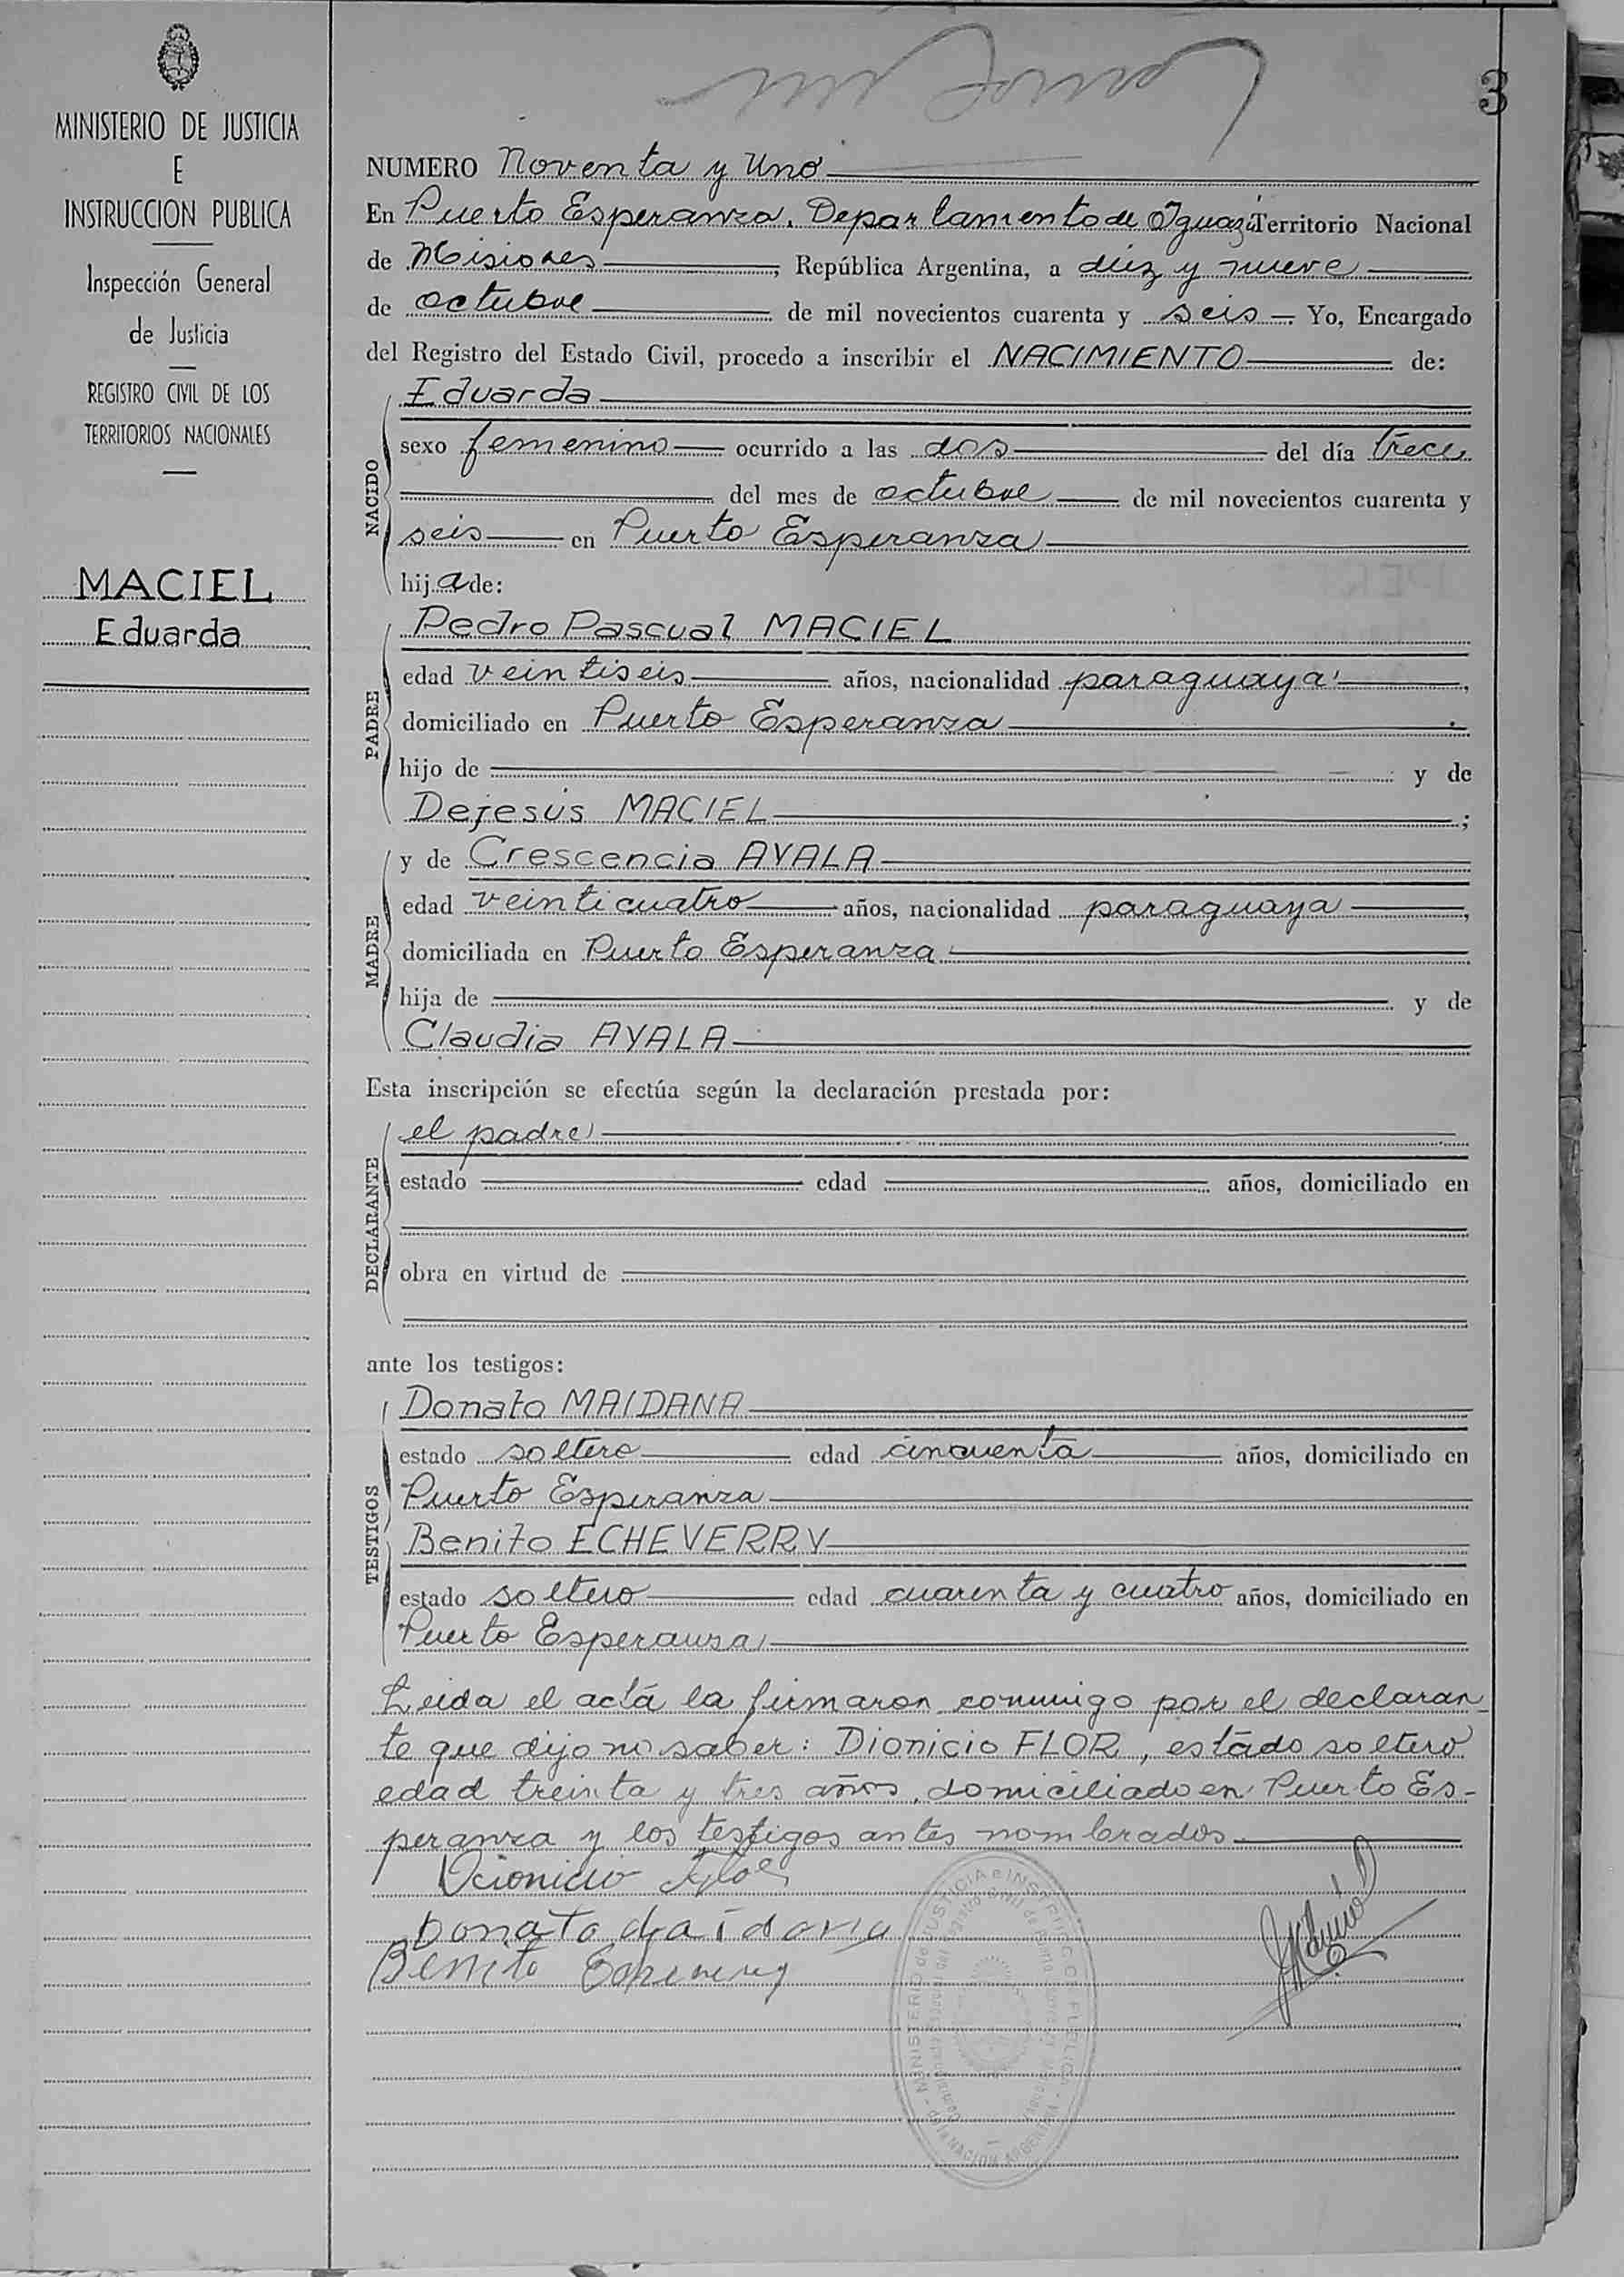 MINISTERIO DE JUSTICIA
E
INSTRUCCION PUBLICA
Inspección General
de Justicia
REGISTRO CIVIL DE LOS
TERRITORIOS NACIONALES
MACIEL
Eduarda
3
NUMERO Noventa y Uno
En Puerto Esperanza, Departamento de Iguazú Territorio Nacional
de Misiones, República Argentina, a diez y nueve
de octubre de mil novecientos cuarenta y seis. Yo, Encargado
del Registro del Estado Civil, procedo a inscribir el NACIMIENTO de:
NACIDO
Eduarda
sexo femenino ocurrido a las dos del día trece
del mes de octubre de mil novecientos cuarenta y
seis en Puerto Esperanza
hija de:
PADRE
Pedro Pascual MACIEL
edad veintiseis años, nacionalidad paraguaya,
domiciliado en Puerto Esperanza
hijo de y de
Dejesús MACIEL;
MADRE
y de Crescencia AYALA
edad veinticuatro años, nacionalidad paraguaya,
domiciliada en Puerto Esperanza
hija de y de
Claudia AYALA
Esta inscripción se efectúa según la declaración prestada por:
DECLARANTE
el padre
estado edad años, domiciliado en
obra en virtud de
ante los testigos:
TESTIGOS
Donato MAIDANA
estado soltero edad cincuenta años, domiciliado en
Puerto Esperanza
Benito ECHEVERRY
estado soltero edad cuarenta y cuatro años, domiciliado en
Puerto Esperanza
Leida el acta la firmaron conmigo por el declaran-
te que dijo no saber: Dionicio FLOR, estado soltero
edad treinta y tres años, domiciliado en Puerto Es-
peranza y los testigos antes nombrados.
Dionicio Flor
Donato Maidana
Benito Echeverry
MINISTERIO de JUSTICIA e INSTRUCCION PUBLICA
de la NACION ARGENTINA